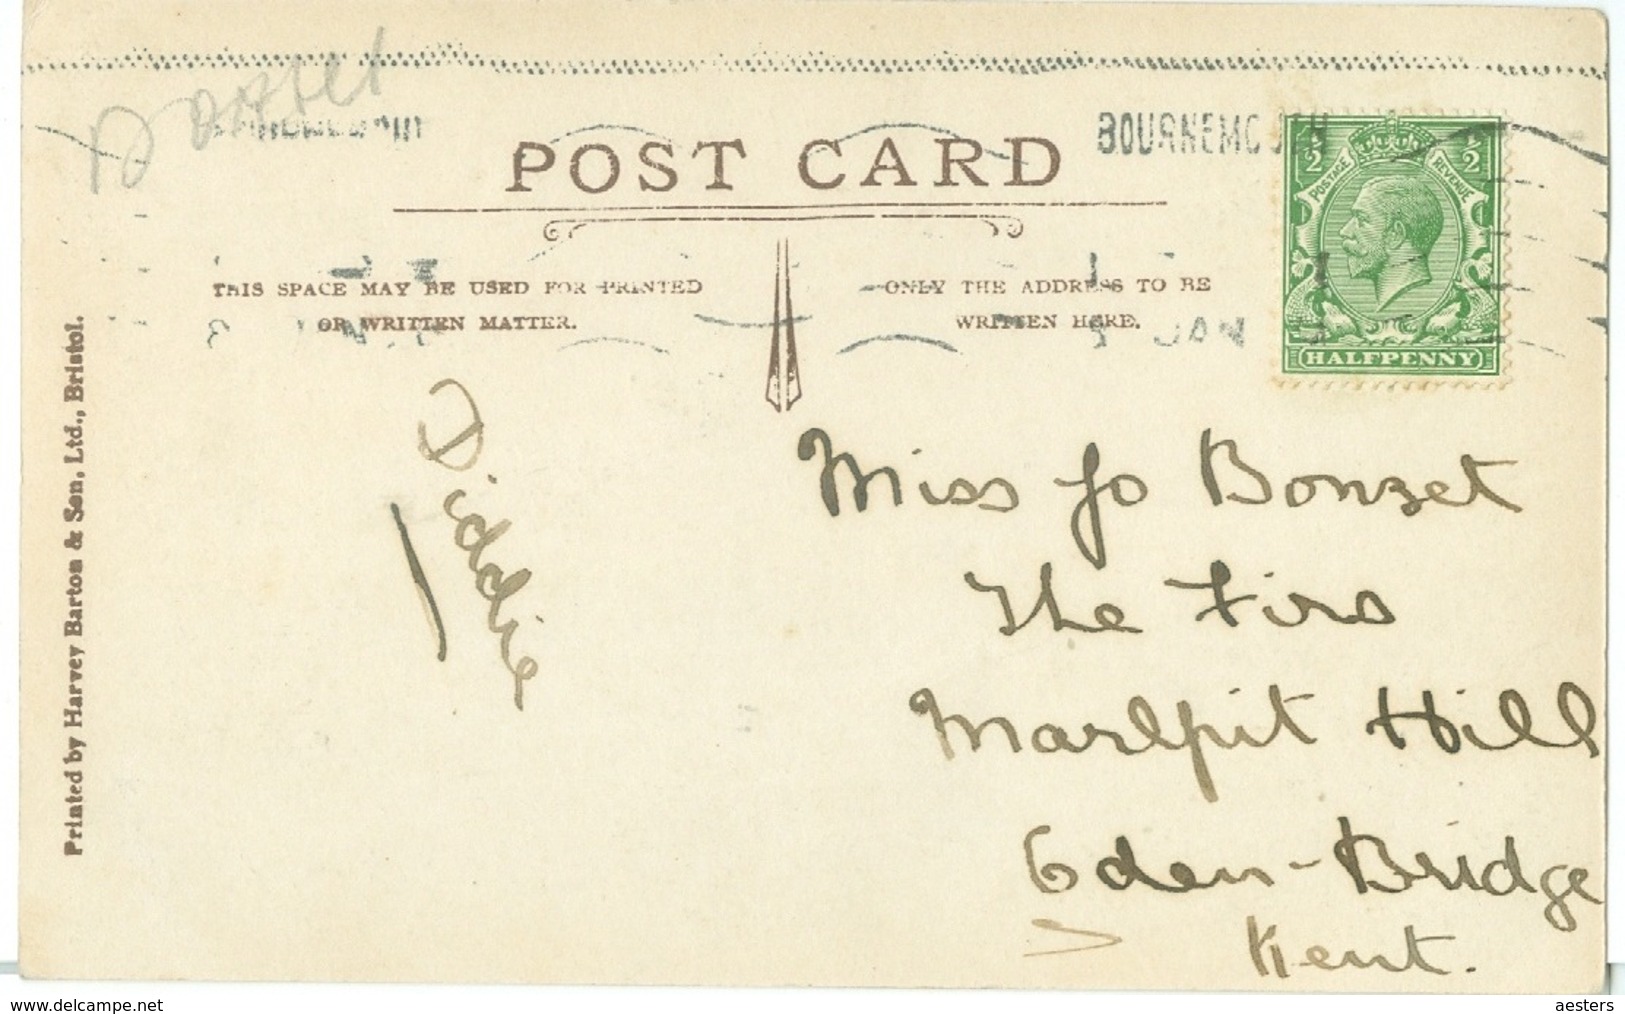 Dorset
BOURNEMOUTH
POST CARD
THIS SPACE MAY BE USED FOR PRINTED
OR WRITTEN MATTER.
ONLY THE ADDRESS TO BE
WRITTEN HERE.
½ ½
POSTAGE REVENUE
HALFPENNY
JAN
Printed by Harvey Barton & Son, Ltd., Bristol.
Diddie
Miss Jo Bonzet
The Firs
Marlpit Hill
Eden-Bridge
Kent.
www.delcampe.net
aesters